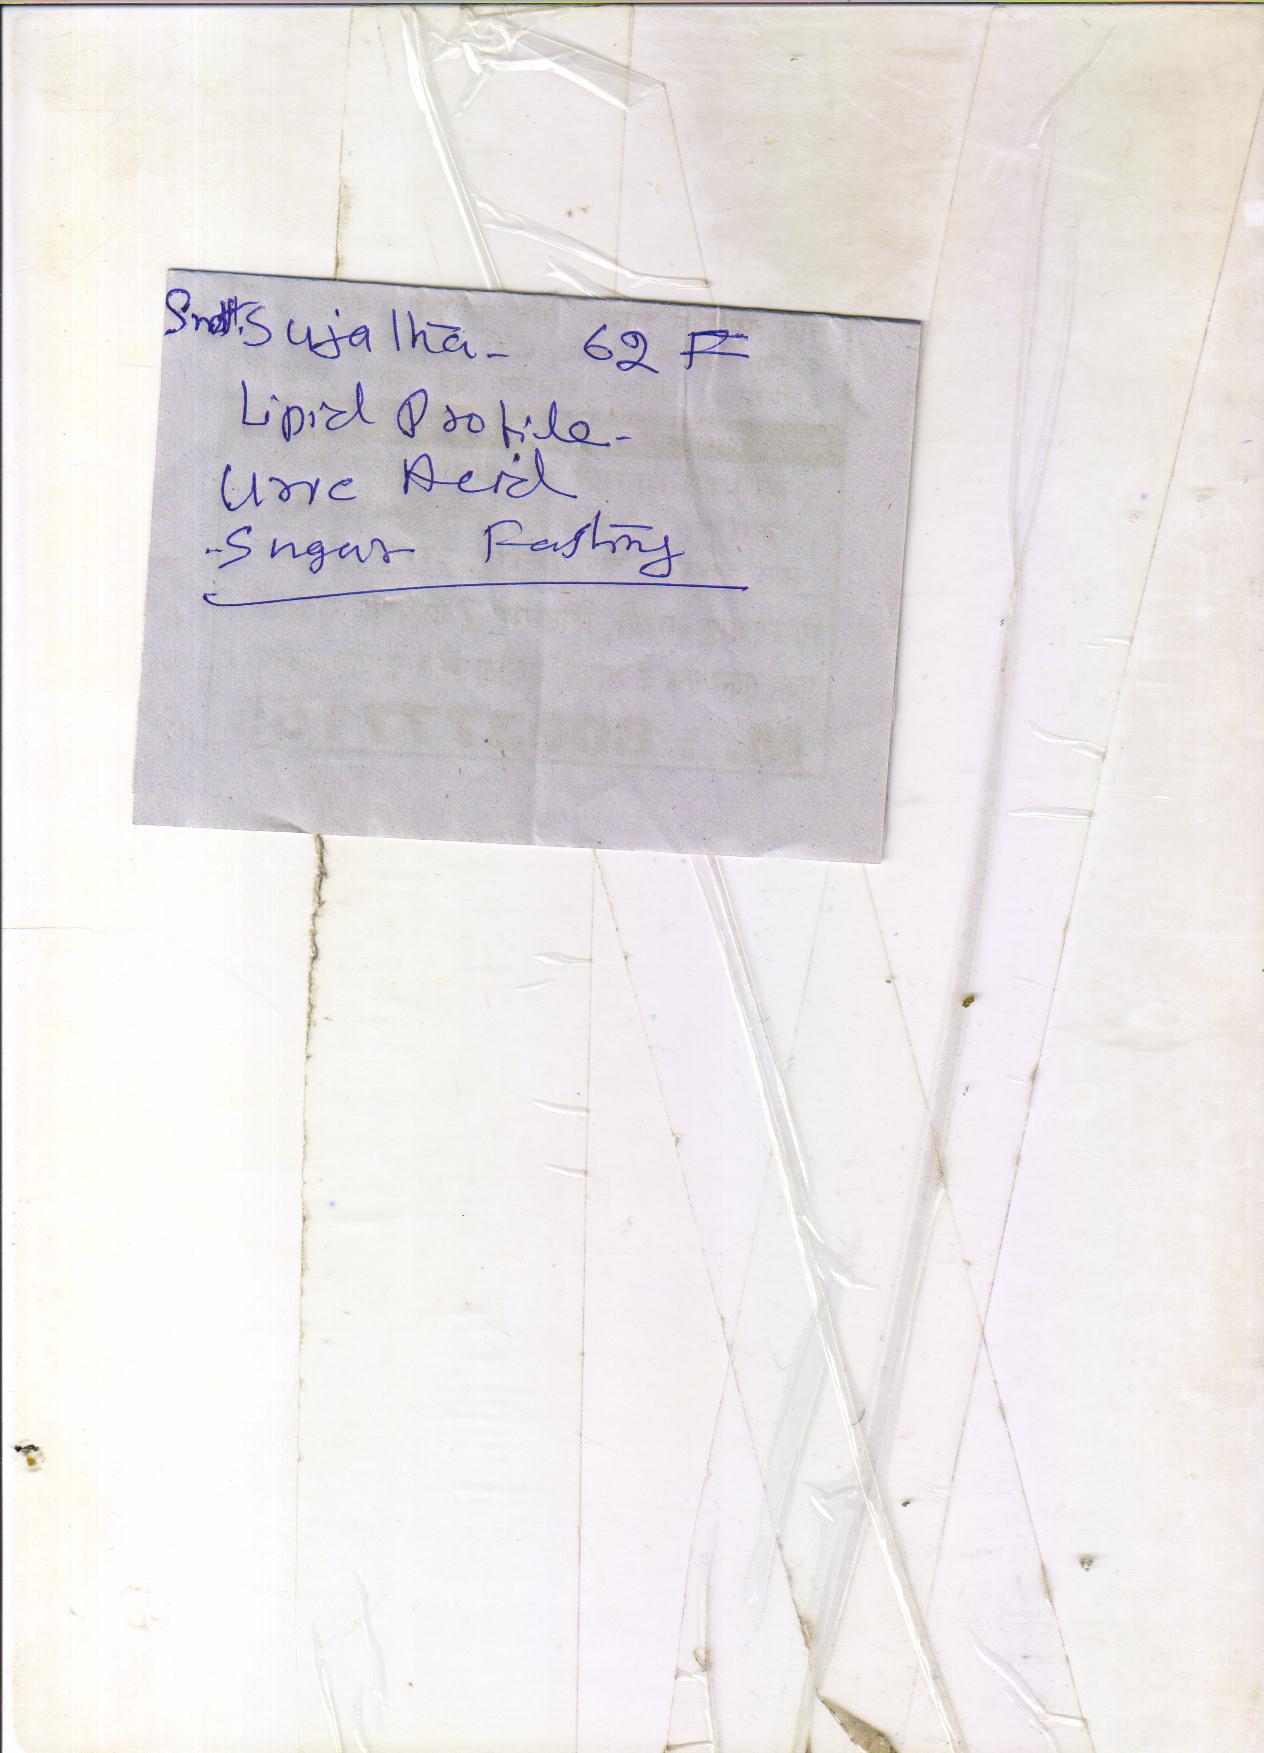 Smt. Sujatha - 62 F
Lipid Profile -
Uric Acid
Sugar Fasting